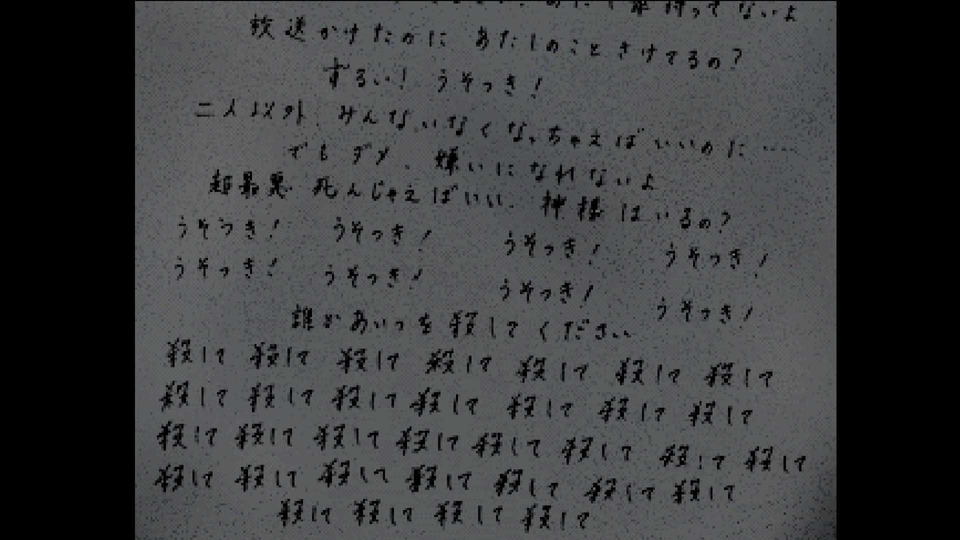 持ってないよ
放送かけたのに あたしのことさけてるの？
ずるい！ うそつき！
二人以外、みんないなくなっちゃえばいいのに……
でもダメ、嫌いになれないよ
超最悪 死んじゃえばいい、神様はいるの？
うそつき！ うそつき！ うそつき！ うそつき！
うそつき！ うそつき！ うそつき！ うそつき！
誰かあいつを殺してください
殺して 殺して 殺して 殺して 殺して 殺して 殺して
殺して 殺して 殺して 殺して 殺して 殺して 殺して
殺して 殺して 殺して 殺して 殺して 殺して 殺して 殺して
殺して 殺して 殺して 殺して 殺して 殺して 殺して
殺して 殺して 殺して 殺して